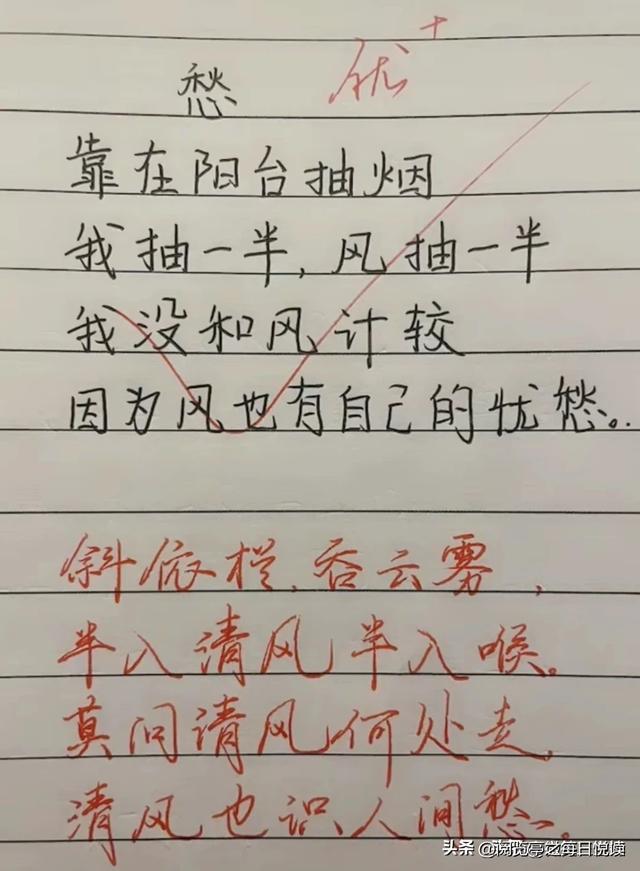 愁
优+
靠在阳台抽烟
我抽一半,风抽一半
我没和风计较
因为风也有自己的忧愁。
斜依栏,吞云雾,
半入清风半入喉。
莫问清风何处走,
清风也识人间愁。
头条 @
每日悦读